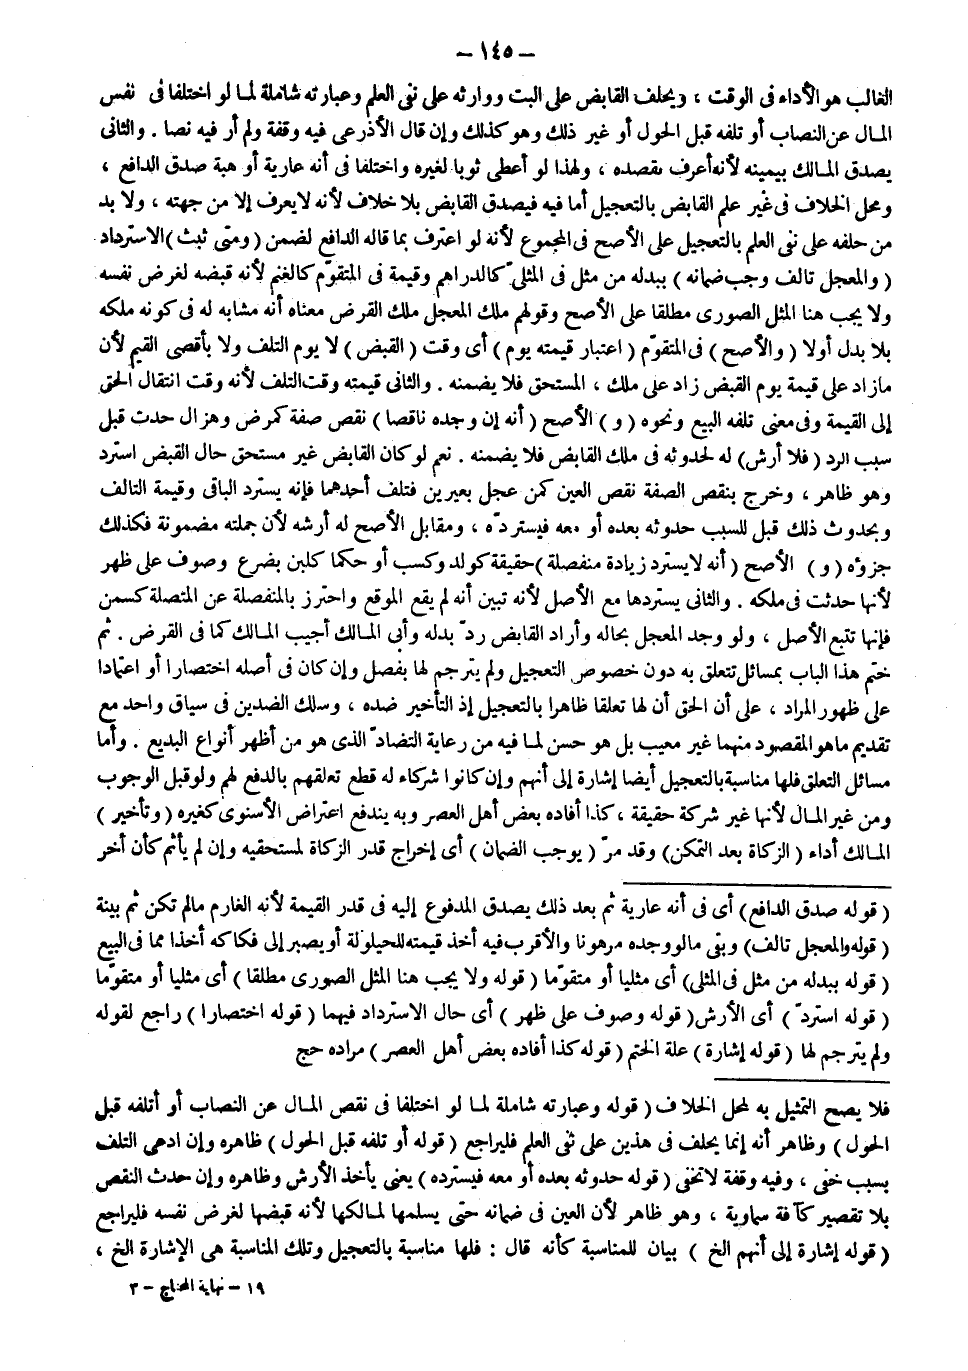 – ١٤٥ –
الغالب هو الأداء فى الوقت ، ويحلف القابض على البت ووارثه على نفى العلم وعبارته شاملة لما لو اختلفا فى نقص
المال عن النصاب أو تلفه قبل الحول أو غير ذلك وهو كذلك وإن قال الأذرعى فيه وقفة ولم أر فيه نصا . والثانى
يصدق المالك بيمينه لأنه أعرف بقصده ، ولهذا لو أعطى ثوبا لغيره واختلفا فى أنه عارية أو هبة صدق الدافع ،
ومحل الخلاف فى غير علم القابض بالتعجيل أما فيه فيصدق القابض بلا خلاف لأنه لا يعرف إلا من جهته ، ولا بد
من حلفه على نفى العلم بالتعجيل على الأصح فى المجموع لأنه لو اعترف بما قاله الدافع لضمن ( ومتى ثبت ) الاسترداد
( والمعجل تالف وجب ضمانه ) ببدله من مثل فى المثلىّ كالدراهم وقيمة فى المتقوّم كالغنم لأنه قبضه لغرض نفسه
ولا يجب هنا المثل الصورى مطلقا على الأصح وقولهم ملك المعجل ملك القرض معناه أنه مشابه له فى كونه ملكه
بلا بدل أولا ( والأصح ) فى المتقوّم ( اعتبار قيمته يوم ) أى وقت ( القبض ) لا يوم التلف ولا بأقصى القيم لأن
مازاد على قيمة يوم القبض زاد على ملك ، المستحق فلا يضمنه . والثانى قيمته وقت التلف لأنه وقت انتقال الحق
إلى القيمة وفى معنى تلفه البيع ونحوه ( و ) الأصح ( أنه إن وجده ناقصا ) نقص صفة كمرض وهزال حدث قبل
سبب الرد ( فلا أرش ) له لحدوثه فى ملك القابض فلا يضمنه . نعم لو كان القابض غير مستحق حال القبض استرد
وهو ظاهر ، وخرج بنقص الصفة نقص العين كمن عجل بعيرين فتلف أحدهما فإنه يسترد الباقى وقيمة التالف
وبحدوث ذلك قبل للسبب حدوثه بعده أو معه فيستردّه ، ومقابل الأصح له أرشه لأن جملته مضمونة فكذلك
جزؤه ( و ) الأصح ( أنه لا يسترد زيادة منفصلة ) حقيقة كولد وكسب أو حكما كلبن بضرع وصوف على ظهر
لأنها حدثت فى ملكه . والثانى يستردها مع الأصل لأنه تبين أنه لم يقع الموقع واحترز بالمنفصلة عن المتصلة كسمن
فإنها تتبع الأصل ، ولو وجد المعجل بحاله وأراد القابض ردّ بدله وأبى المالك أجيب المالك كما فى القرض . ثم
ختم هذا الباب بمسائل تتعلق به دون خصوص التعجيل ولم يترجم لها بفصل وإن كان فى أصله اختصارا أو اعتمادا
على ظهور المراد ، على أن الحق أن لها تعلقا ظاهرا بالتعجيل إذ التأخير ضده ، وسلك الضدين فى سياق واحد مع
تقديم ماهو المقصود منهما غير معيب بل هو حسن لما فيه من رعاية التضادّ الذى هو من أظهر أنواع البديع . وأما
مسائل التعلق فلها مناسبة بالتعجيل أيضا إشارة إلى أنهم وإن كانوا شركاء له قطع تعلقهم بالدفع لهم ولو قبل الوجوب
ومن غير المال لأنها غير شركة حقيقة ، كذا أفاده بعض أهل العصر وبه يندفع اعتراض الأسنوى كغيره ( وتأخير )
المالك أداء ( الزكاة بعد التمكن ) وقد مرّ ( يوجب الضمان ) أى إخراج قدر الزكاة لمستحقيه وإن لم يأثم كأن أخر
( قوله صدق الدافع ) أى فى أنه عارية ثم بعد ذلك يصدق المدفوع إليه فى قدر القيمة لأنه الغارم مالم تكن ثم بينة
( قوله والمعجل تالف ) وبقى مالو وجده مرهونا والأقرب فيه أخذ قيمته للحيلولة أو يصبر إلى فكاكه أخذا مما فى البيع
( قوله ببدله من مثل فى المثلى ) أى مثليا أو متقوّما ( قوله ولا يجب هنا المثل الصورى مطلقا ) أى مثليا أو متقوّما
( قوله استردّ ) أى الأرش ( قوله وصوف على ظهر ) أى حال الاسترداد فيهما ( قوله اختصارا ) راجع لقوله
ولم يترجم لها ( قوله إشارة ) علة الختم ( قوله كذا أفاده بعض أهل العصر ) مراده حج
فلا يصح التمثيل به لمحل الخلاف ( قوله وعبارته شاملة لما لو اختلفا فى نقص المال عن النصاب أو أتلفه قبل
الحول ) وظاهر أنه إنما يحلف فى هذين على نفى العلم فليراجع ( قوله أو تلفه قبل الحول ) ظاهره وإن ادعى التلف
بسبب خفى ، وفيه وقفة لا تخفى ( قوله حدوثه بعده أو معه فيسترده ) يعنى يأخذ الأرش وظاهره وإن حدث النقص
بلا تقصير كآفة سماوية ، وهو ظاهر لأن العين فى ضمانه حتى يسلمها لمالكها لأنه قبضها لغرض نفسه فليراجع
( قوله إشارة إلى أنهم الخ ) بيان للمناسبة كأنه قال : فلها مناسبة بالتعجيل وتلك المناسبة هى الإشارة الخ ،
١٩ – نهاية المحتاج – ٣